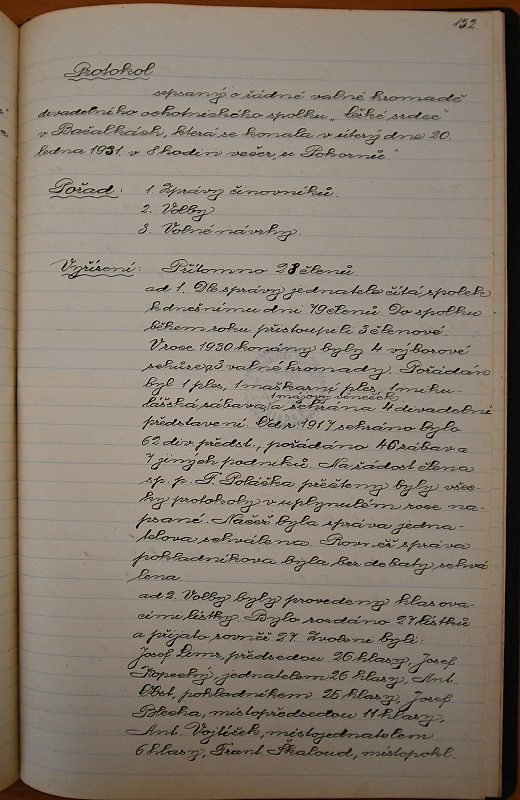 152.
Protokol
sepsaný o řádné valné hromadě
divadelního ochotnického spolku „Lážé srdce"
v Bačalkách, která se konala v úterý dne 20.
ledna 1931. v 8 hodin večer „u Pokornů"
Pořad: 1. Zprávy činovníků.
2. Volby
3. Volné návrhy.
Vyřízení: Přítomno 28 členů.
ad 1. Dle správy jednatele čítá spolek
k dnešnímu dni 79 členů Do spolku
během roku přistoupili 3 členové.
V roce 1930 konány byly 4 výborové
schůze, 3 valné hromady. Pořádán
byl 1 ples, 1 maškarní ples, 1 miku-
1 májový věneček
lášská zábava, a sehrána 4 divadelní
představení. Od r. 1917 sehráno bylo
62 div. předst., pořádáno 46 zábav a
7 jiných podniků. Na žádost člena
sp. p. F. Poláška přečteny byly všec-
ky protokoly v uplynulém roce na-
psané. Načež byla správa jedna-
telova schválena. Rovněž správa
pokladníkova byla bez debaty schvá
lena.
ad 2. Volby byly provedeny hlasova-
cími lístky. Bylo rozdáno 27 lístků
a přijato rovněž 27. Zvoleni byli:
Josef předsedou 26 hlasy, Josef
Kopecký, jednatelem 26 hlasy, Ant.
pokladníkem 25 hlasy, Josef
Blecha, místopředsedou 11 hlasy,
Ant. Vojtíšek, místojednatelem
6 hlasy, Frant. Škaloud, místopokl.